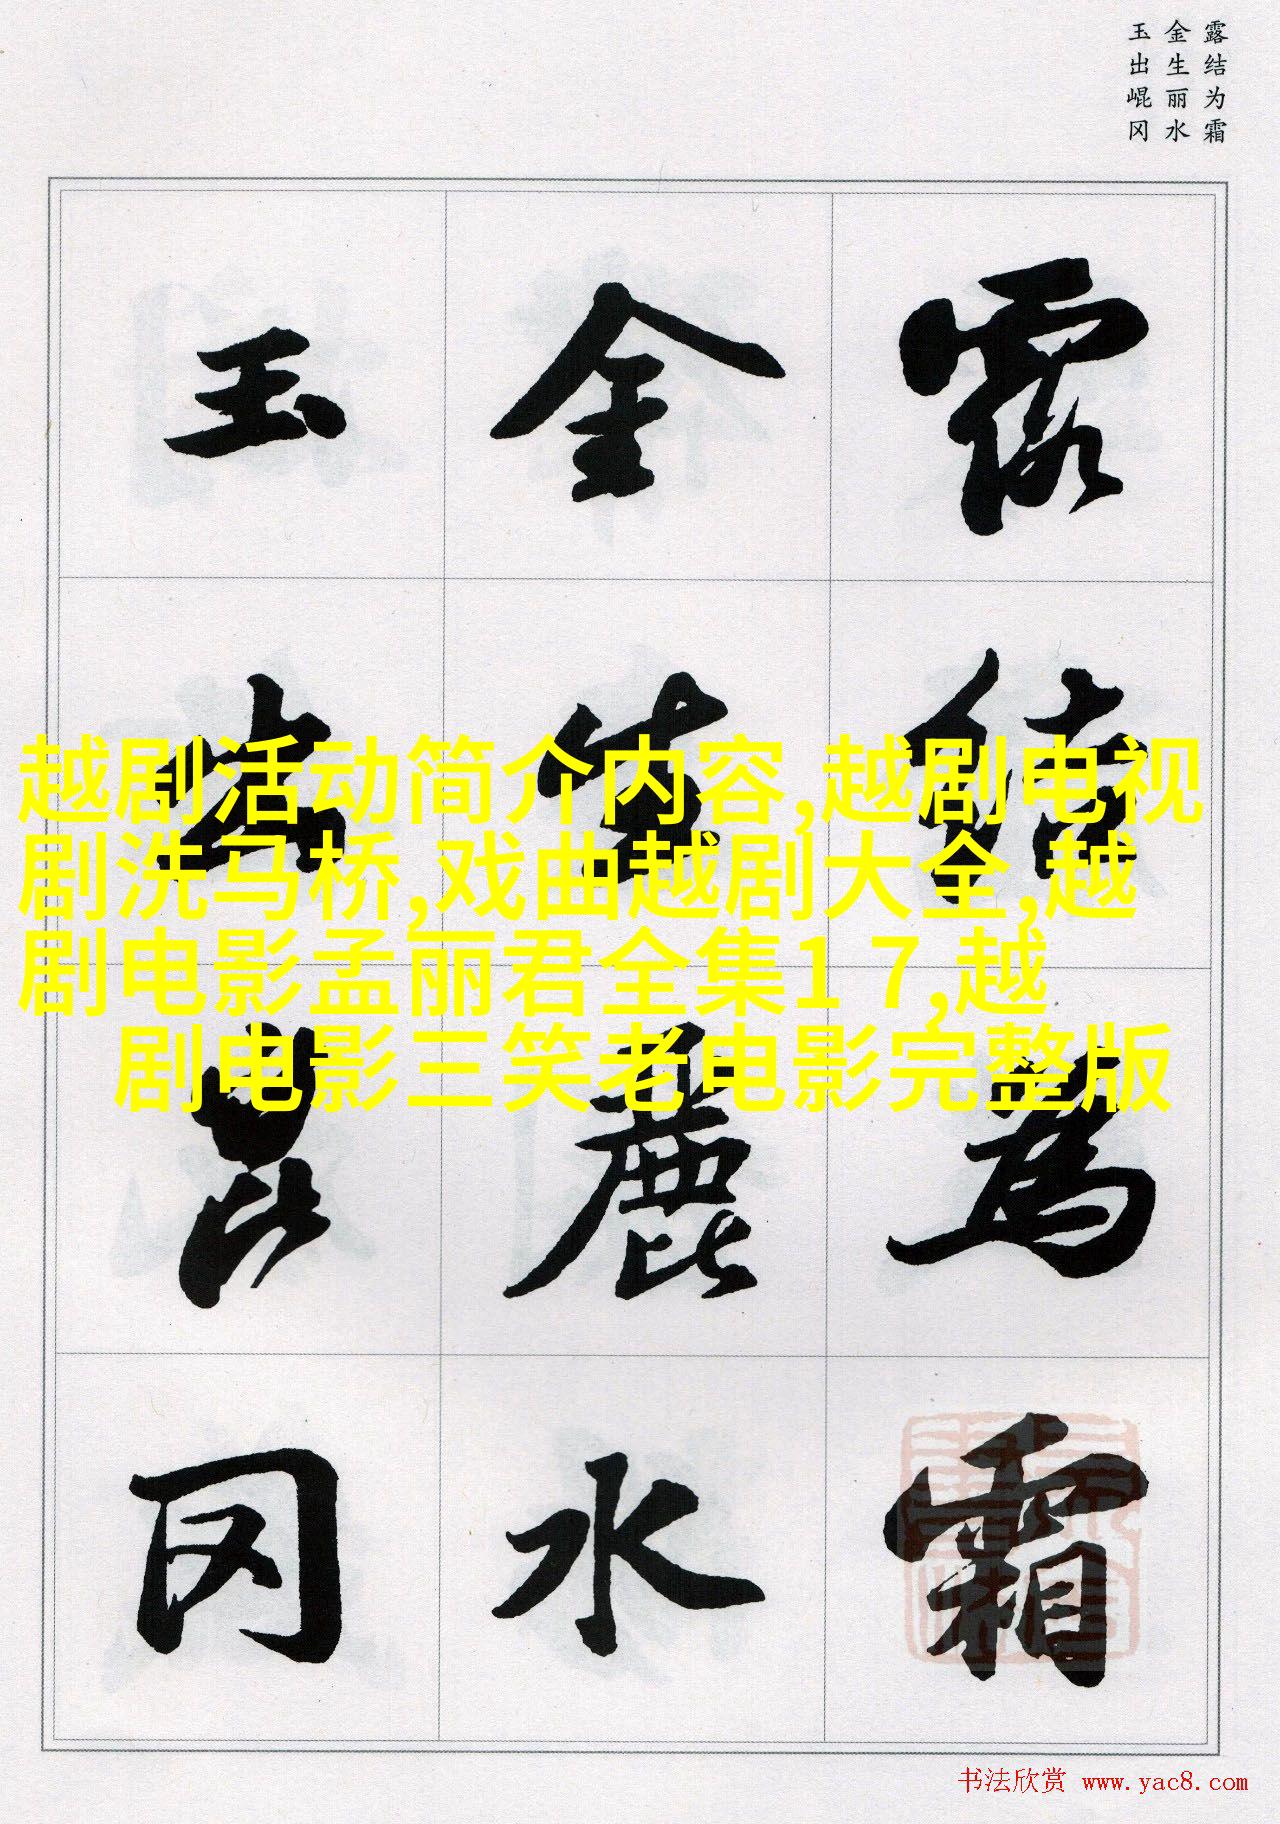 露结为霜
金生丽水
玉出崐冈
露结為霜
金生麗水
玉出崑冈
越剧活动简介内容,越剧电视
剧洗马桥,戏曲越剧大全,越
剧电影孟丽君全集1 7,越
剧电影三笑老电影完整版
书法欣赏 www.yac8.com